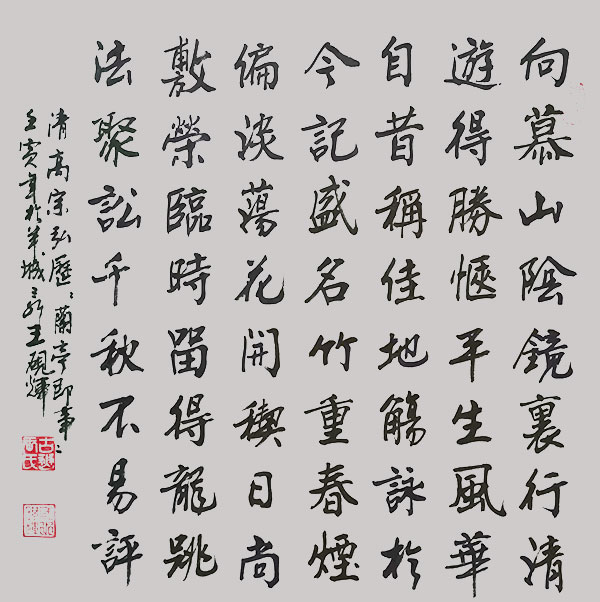 向慕山陰鏡裏行清
遊得勝愜平生風華
自昔稱佳地觴詠於
今記盛名竹重春煙
偏淡蕩花開禊日尚
敷榮臨時留得龍跳
法聚訟千秋不易評
清高宗弘歷蘭亭即事
壬寅年於羊城王硯輝